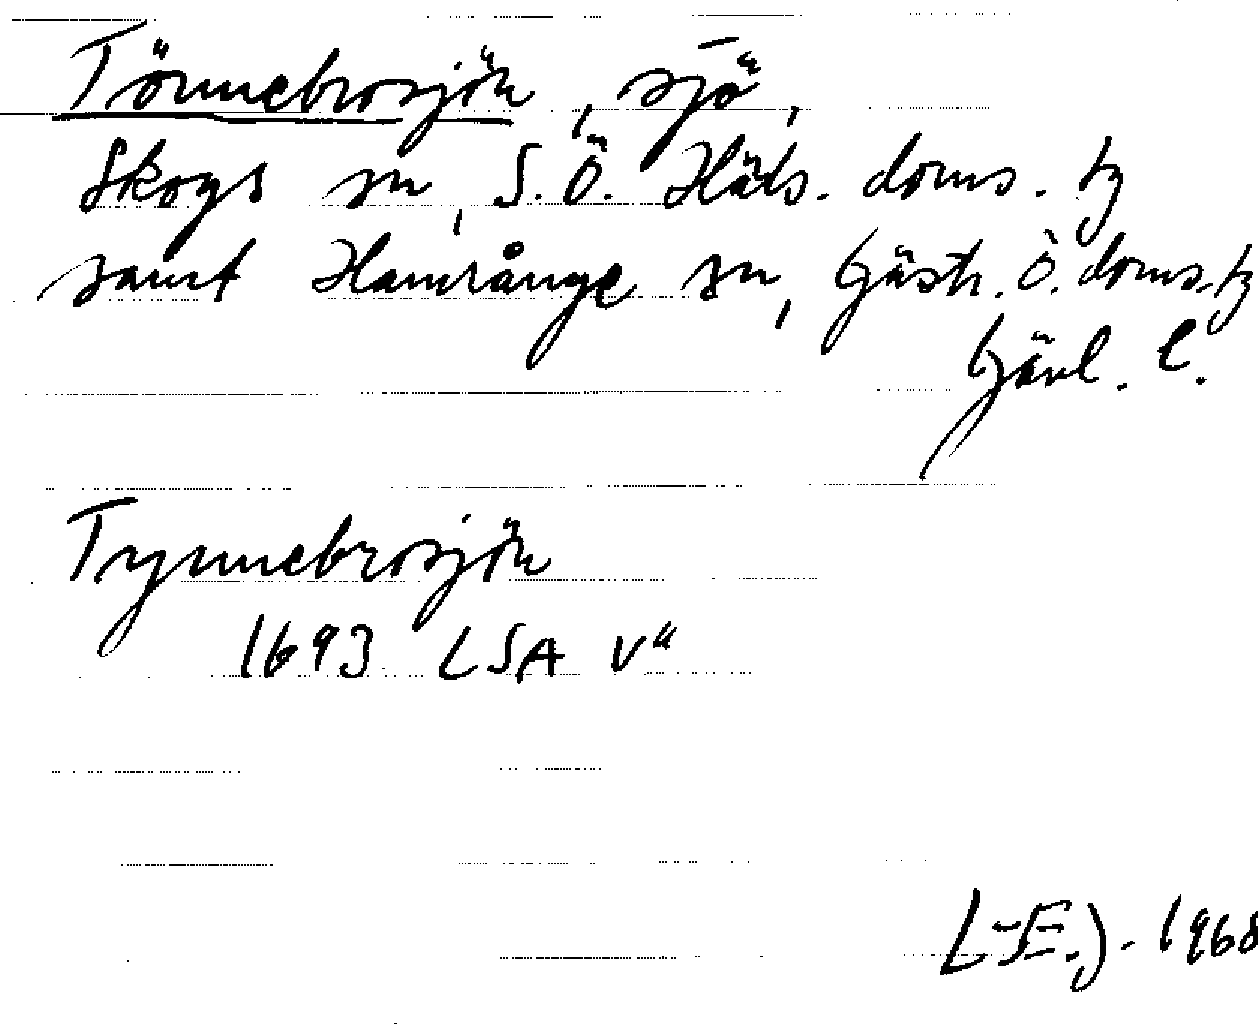 Tönnebrosjön, sjö,
Skogs sn, S.Ö. Häls. doms. tg
samt Hamrånge sn, Gästr. Ö. doms. tg
Gävl. l.
Tynnebrosjön
1693 LSA V"
L-E.J. 1968